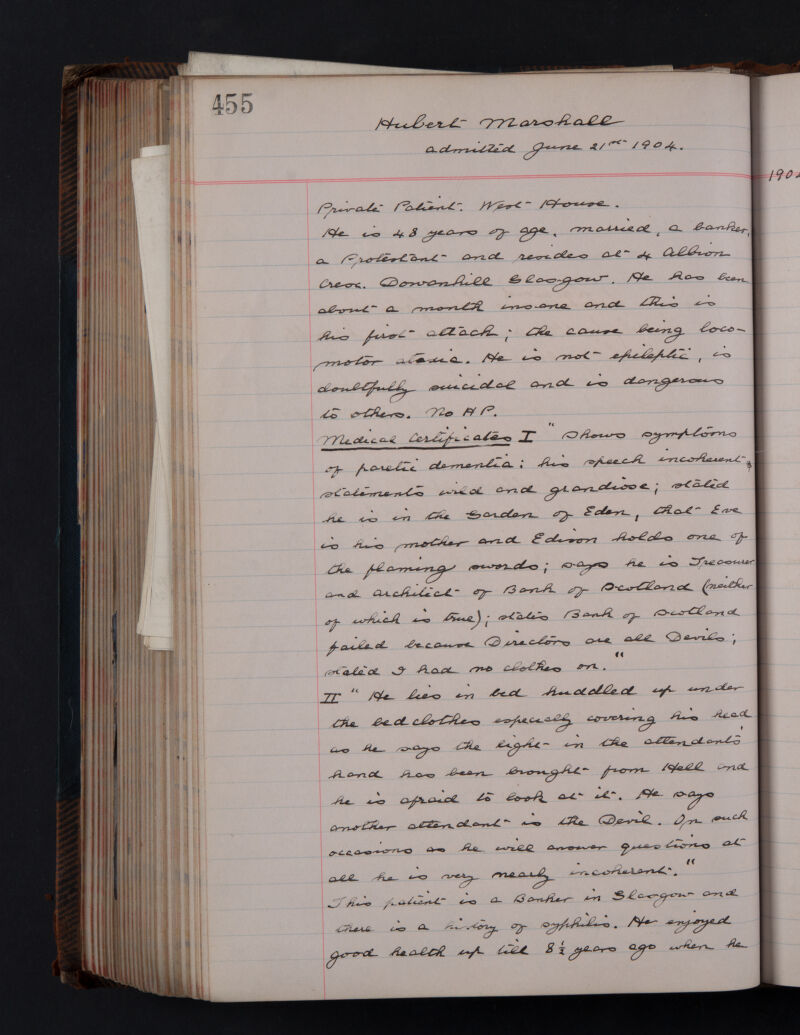 455
Hubert Marshall
admitted June 21st 1904.
190
Private Patient. West House.
He is 48 years of age, married, a banker,
a Protestant and resides at 4 Albion
Cresc. Dowanhill Glasgow. He has been
about a month insane and this is
his first attack; the cause being loco-
motor ataxia. He is not epileptic, is
doubtfully suicidal and is dangerous
to others. No H P.
Medical Certificates I "Shows symptoms
of paretic dementia: his speech incoherent &
statements wild and grandiose; stated
he is in the Garden of Eden, that Eve
is his mother and Edison holds one of
the flaming swords; says he is Treasurer
and architect of Bank of Scotland (neither
of which is true); states Bank of Scotland
failed because Directors are all Devils;
stated I had no clothes on."
II "He lies in bed huddled up under
the bedclothes especially covering his head
as he says the light in the attendant's
hand has been brought from Hell and
he is afraid to look at it. He says
another attendant is the Devil. On such
occasions as he will answer questions at
all he is very nearly incoherent."
This patient is a Banker in Glasgow and
there is a history of syphilis. He enjoyed
good health up till 8½ years ago when he